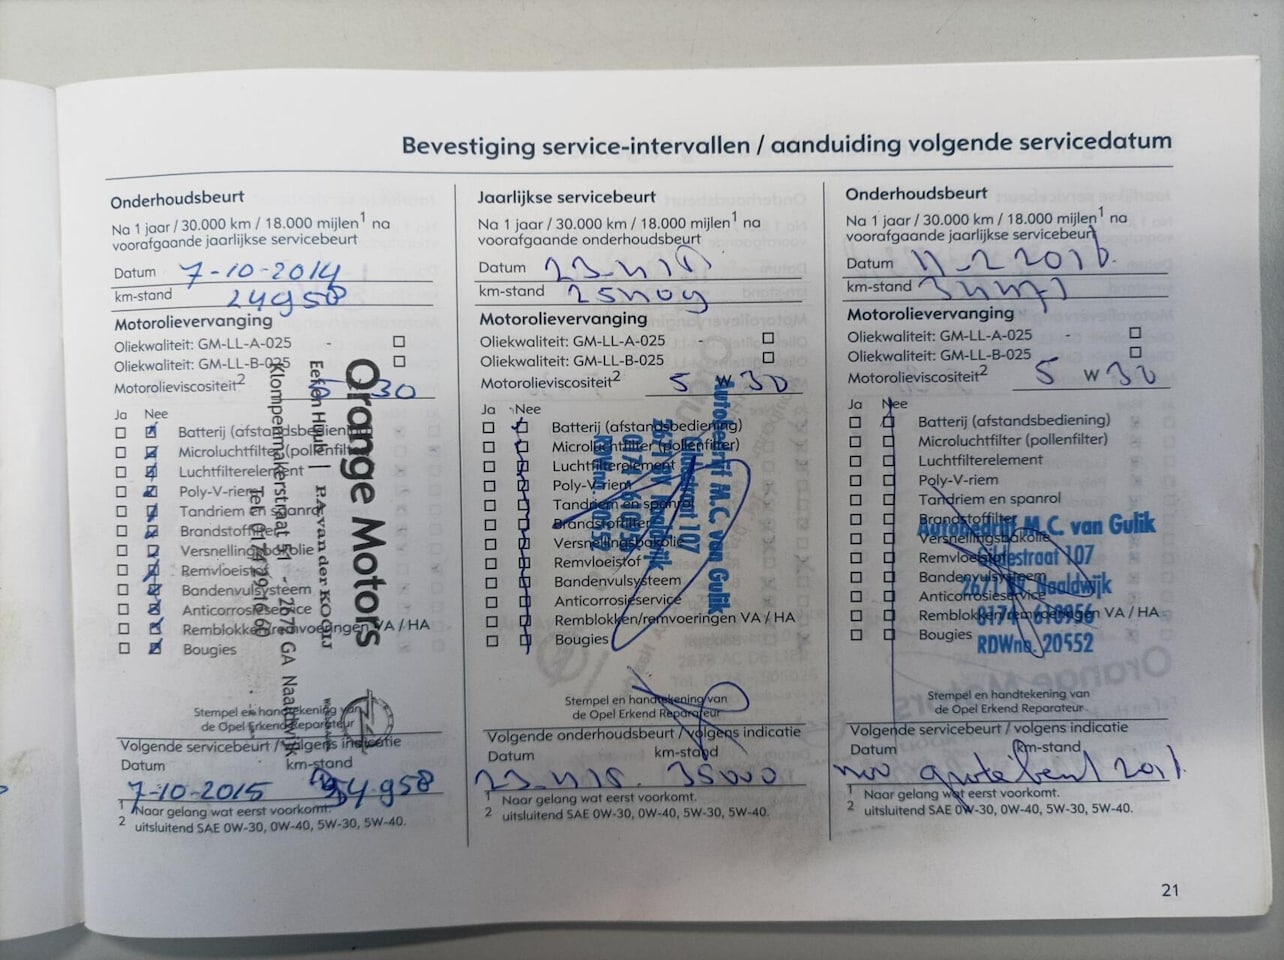 Bevestiging service-intervallen / aanduiding volgende servicedatum
Onderhoudsbeurt
Na 1 jaar / 30.000 km / 18.000 mijlen1 na
voorafgaande jaarlijkse servicebeurt
Datum 7-10-2014
km-stand 24958
Motorolievervanging
Oliekwaliteit: GM-LL-A-025 -
Oliekwaliteit: GM-LL-B-025
Motorolieviscositeit2 30
Ja Nee
Batterij (afstandsbediening)
Microluchtfilter (pollenfilter)
Luchtfilterelement
Poly-V-riem
Tandriem en spanrol
Brandstoffilter
Versnellingsbakolie
Remvloeistof
Bandenvulsysteem
Anticorrosieservice
Remblokken/remvoeringen VA / HA
Bougies
Orange Motors
Eef en Huub | P.A. van der KOOIJ
Klompenmakerstraat - 2672 GA Naaldwijk
Stempel en handtekening van
de Opel Erkend Reparateur
Volgende servicebeurt / volgens indicatie
Datum km-stand
7-10-2015 54.958
1 Naar gelang wat eerst voorkomt.
2 uitsluitend SAE 0W-30, 0W-40, 5W-30, 5W-40.
Jaarlijkse servicebeurt
Na 1 jaar / 30.000 km / 18.000 mijlen1 na
voorafgaande onderhoudsbeurt
Datum
km-stand
Motorolievervanging
Oliekwaliteit: GM-LL-A-025 -
Oliekwaliteit: GM-LL-B-025
Motorolieviscositeit2 5 W 30
Ja Nee
Batterij (afstandsbediening)
Microluchtfilter (pollenfilter)
Luchtfilterelement
Poly-V-riem
Tandriem en spanrol
Brandstoffilter
Versnellingsbakolie
Remvloeistof
Bandenvulsysteem
Anticorrosieservice
Remblokken/remvoeringen VA / HA
Bougies
Autobedrijf M.C. van Gulik
Gildestraat 107
Naaldwijk
0174-610956
RDWno. 20552
Stempel en handtekening van
de Opel Erkend Reparateur
Volgende onderhoudsbeurt / volgens indicatie
Datum km-stand
35000
1 Naar gelang wat eerst voorkomt.
2 uitsluitend SAE 0W-30, 0W-40, 5W-30, 5W-40.
Onderhoudsbeurt
Na 1 jaar / 30.000 km / 18.000 mijlen1 na
voorafgaande jaarlijkse servicebeurt
Datum
km-stand
Motorolievervanging
Oliekwaliteit: GM-LL-A-025 -
Oliekwaliteit: GM-LL-B-025
Motorolieviscositeit2 5 W 30
Ja Nee
Batterij (afstandsbediening)
Microluchtfilter (pollenfilter)
Luchtfilterelement
Poly-V-riem
Tandriem en spanrol
Brandstoffilter
Versnellingsbakolie
Remvloeistof
Bandenvulsysteem
Anticorrosieservice
Remblokken/remvoeringen VA / HA
Bougies
Autobedrijf M.C. van Gulik
Gildestraat 107
Naaldwijk
0174-610956
RDWno. 20552
Stempel en handtekening van
de Opel Erkend Reparateur
Volgende servicebeurt / volgens indicatie
Datum km-stand
nov grote beurt
1 Naar gelang wat eerst voorkomt.
2 uitsluitend SAE 0W-30, 0W-40, 5W-30, 5W-40.
21